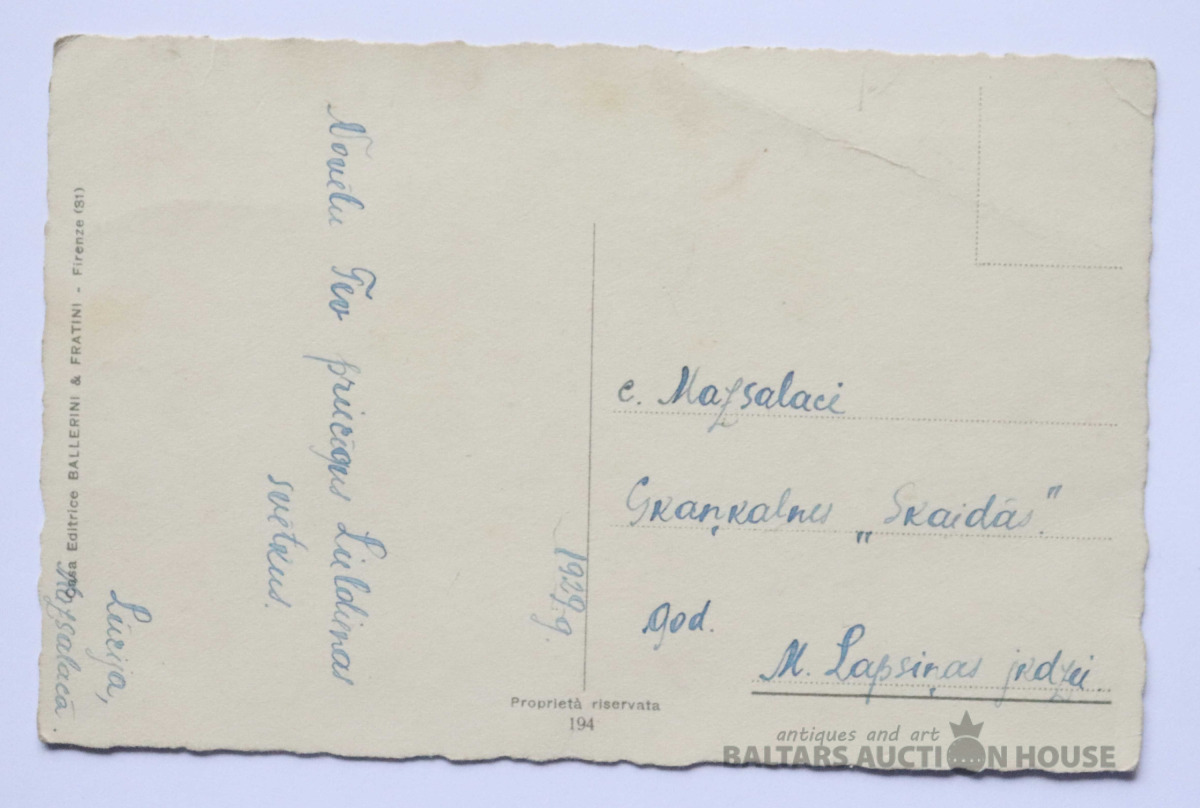 Novēlu Tev priecīgus Lieldienas
svētkus.
1929.g.
Lūcija,
Mazsalacā
Casa Editrice BALLERINI & FRATINI - Firenze (81)
c. Mazsalaci
Skaņkalnes „Skaidās."
God.
M. Lapsiņas jkdzei
Proprietà riservata
194
antiques and art
BALTARS AUCTION HOUSE